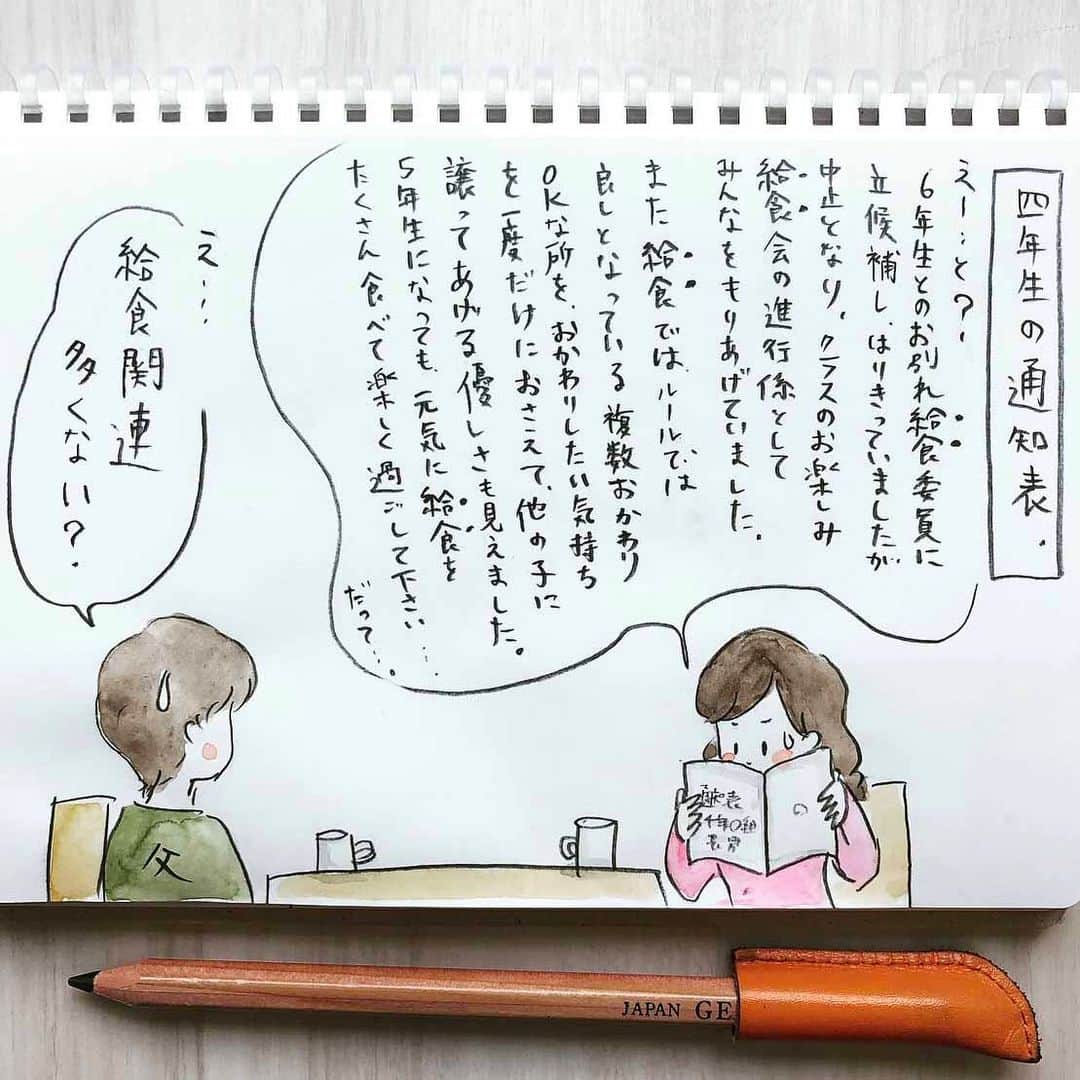 四年生の通知表.
えー…と?
6年生とのお別れ給食委員に
立候補し、はりきっていましたが
中止となり、クラスのお楽しみ
給食会の進行係として
みんなをもりあげていました。
また給食では、ルールでは
良しとなっている複数おかわり
OKな所を、おかわりしたい気持ち
を一度だけにおさえて、他の子に
譲ってあげる優しさも見えました。
5年生になっても、元気に給食を
たくさん食べて楽しく過ごして下さい…
だって…。
え…
給食関連
多くない?
父
通知表
の
JAPAN GE